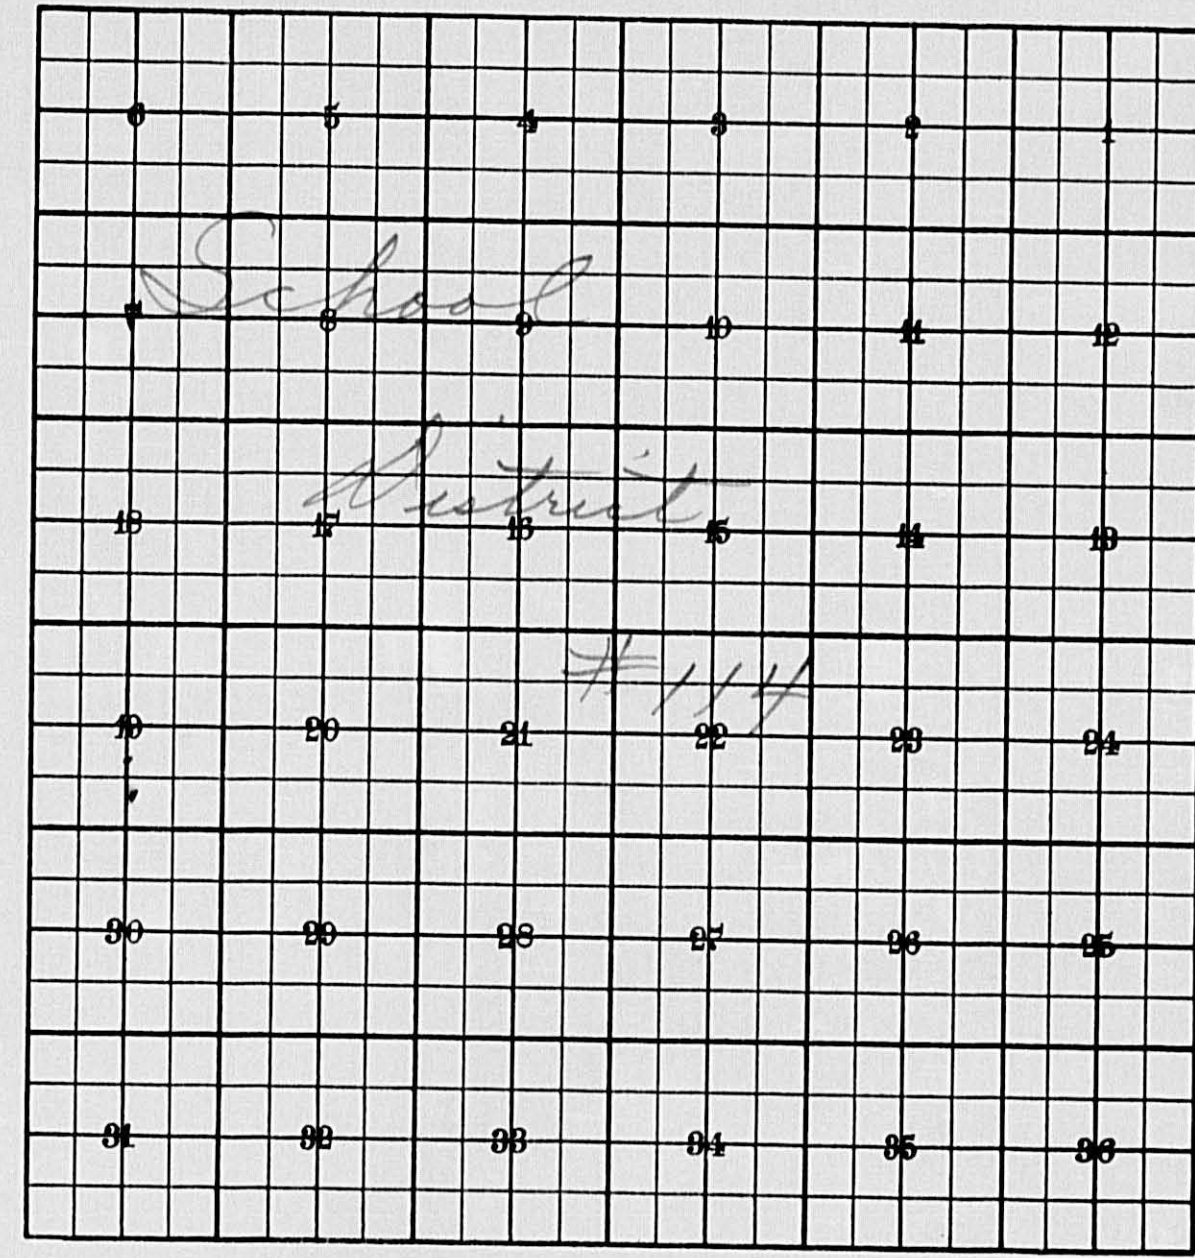 6 5 4 3 2 1
School
7 8 9 10 11 12
District
18 17 16 15 14 13
#114
19 20 21 22 23 24
30 29 28 27 26 25
31 32 33 34 35 36